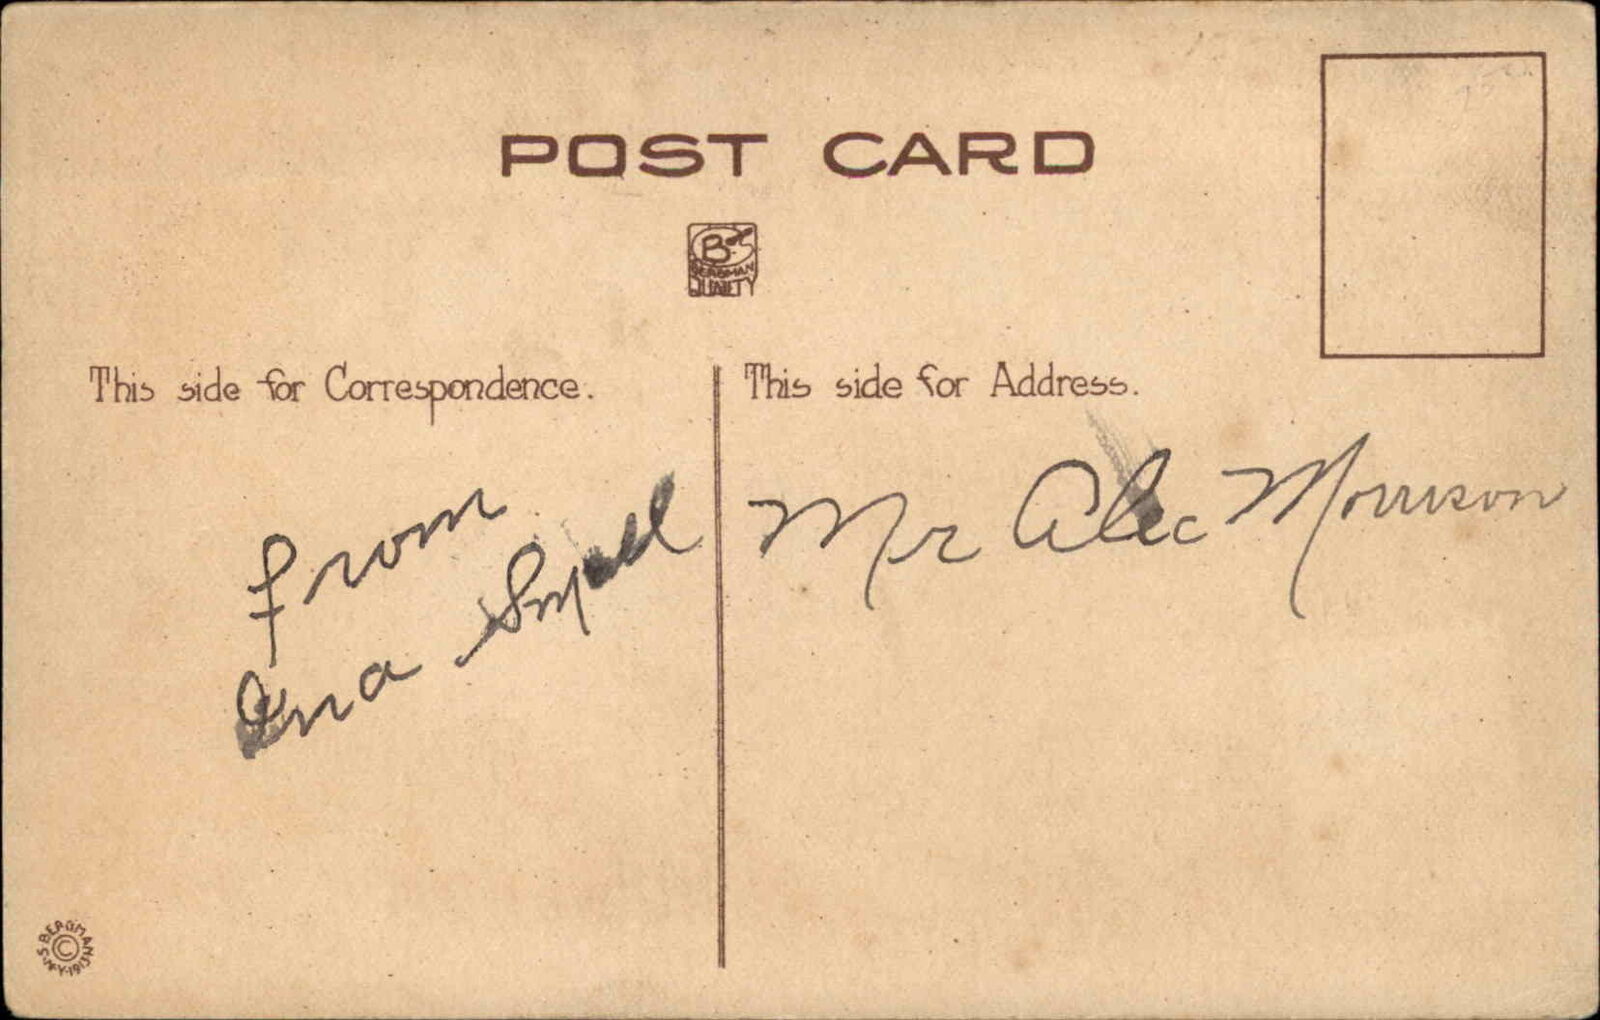 POST CARD
B
BERGMAN
QUALITY
This side for Correspondence.
This side for Address.
From
Mr Alec Morrison
S. BERGMAN N.Y. 1913
©